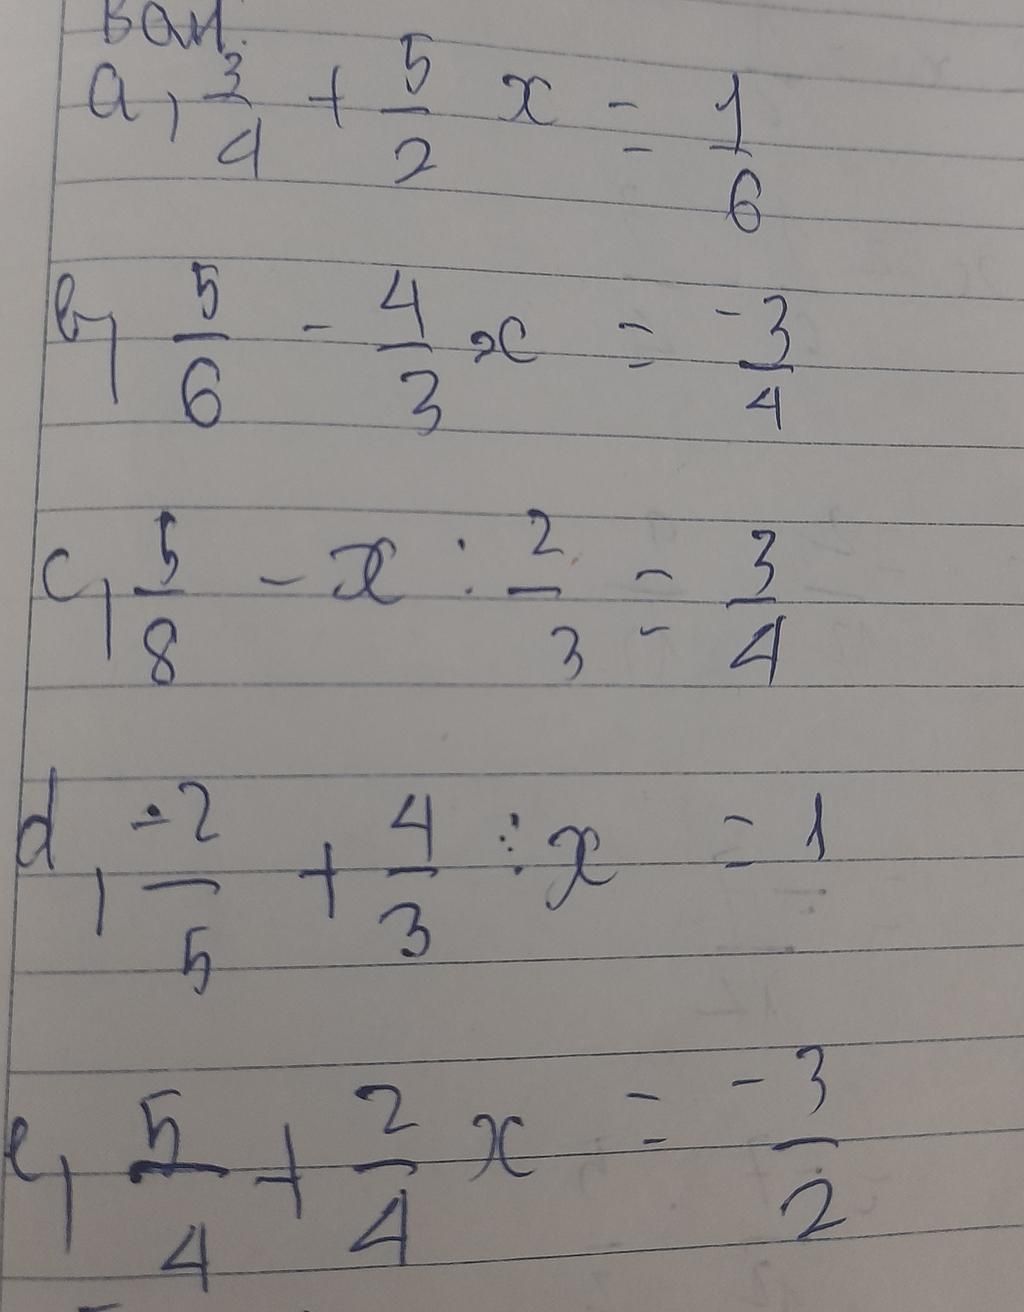 a, 3/4 + 5/2 x = 1/6
b, 5/6 - 4/3 x = -3/4
c, 5/8 - x : 2/3 = 3/4
d, -2/5 + 4/3 : x = 1
e, 5/4 + 2/4 x = -3/2